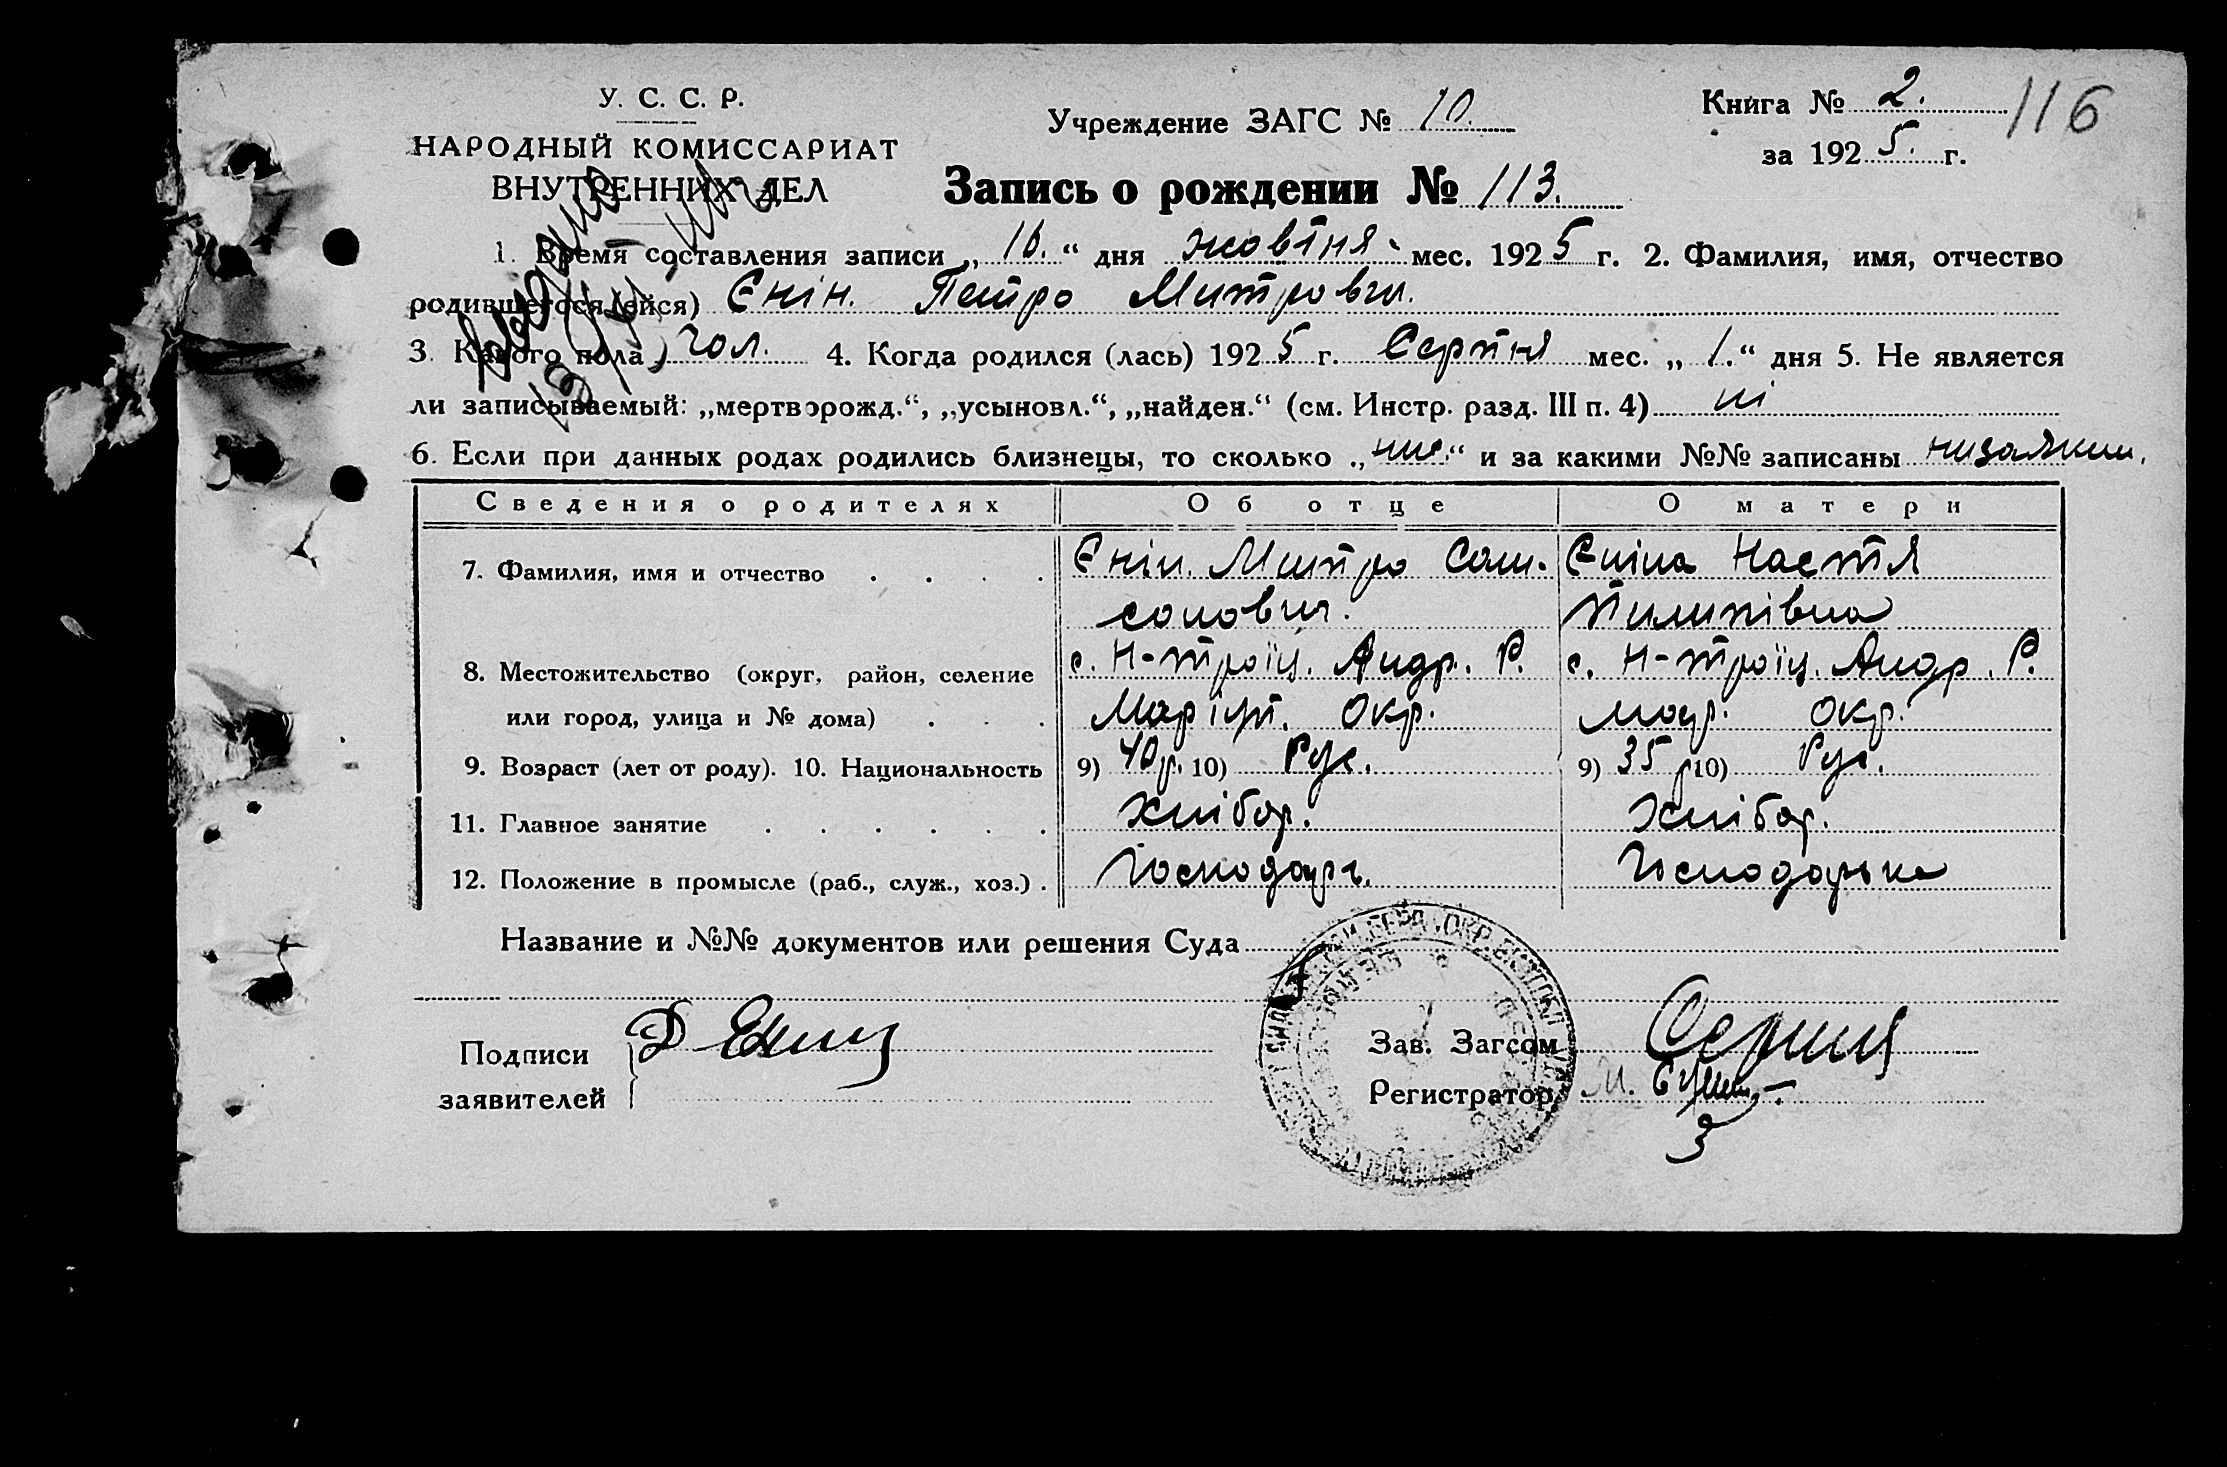 У. С. С. Р.
НАРОДНЫЙ КОМИССАРИАТ
ВНУТРЕННИХ ДЕЛ
Учреждение ЗАГС № 10.
Книга № 2. 116
за 1925. г.
Запись о рождении № 113.
1. Время составления записи „ 16. “ дня жовтня мес. 1925 г. 2. Фамилия, имя, отчество
родившегося (ейся) Єнін. Петро Митрович.
3. Какого пола чол. 4. Когда родился (лась) 1925 г. Серпня мес. „ 1. “ дня 5. Не является
ли записываемый: „мертворожд.“, „усыновл.“, „найден.“ (см. Инстр. разд. III п. 4) ні
6. Если при данных родах родились близнецы, то сколько „ “ и за какими №№ записаны
Сведения о родителях Об отце О матери
7. Фамилия, имя и отчество . . . . Єнін. Митро Сам- Єніна Настя
соно­вич. Пилипівна
8. Местожительство (округ, район, селение с. Н-троїц. Андр. Р. с. Н-троїц. Андр. Р.
или город, улица и № дома) . . . Маріуп. Окр. Мар. Окр.
9. Возраст (лет от роду). 10. Национальность 9) 40 р. 10) Рус. 9) 35 р 10) Рус.
11. Главное занятие . . . . . . Хлібор. Хлібор.
12. Положение в промысле (раб., служ., хоз.) . Господарь. Господарька
Название и №№ документов или решения Суда
Подписи
заявителей
Д Енин
Зав. Загсом
Регистратор М.